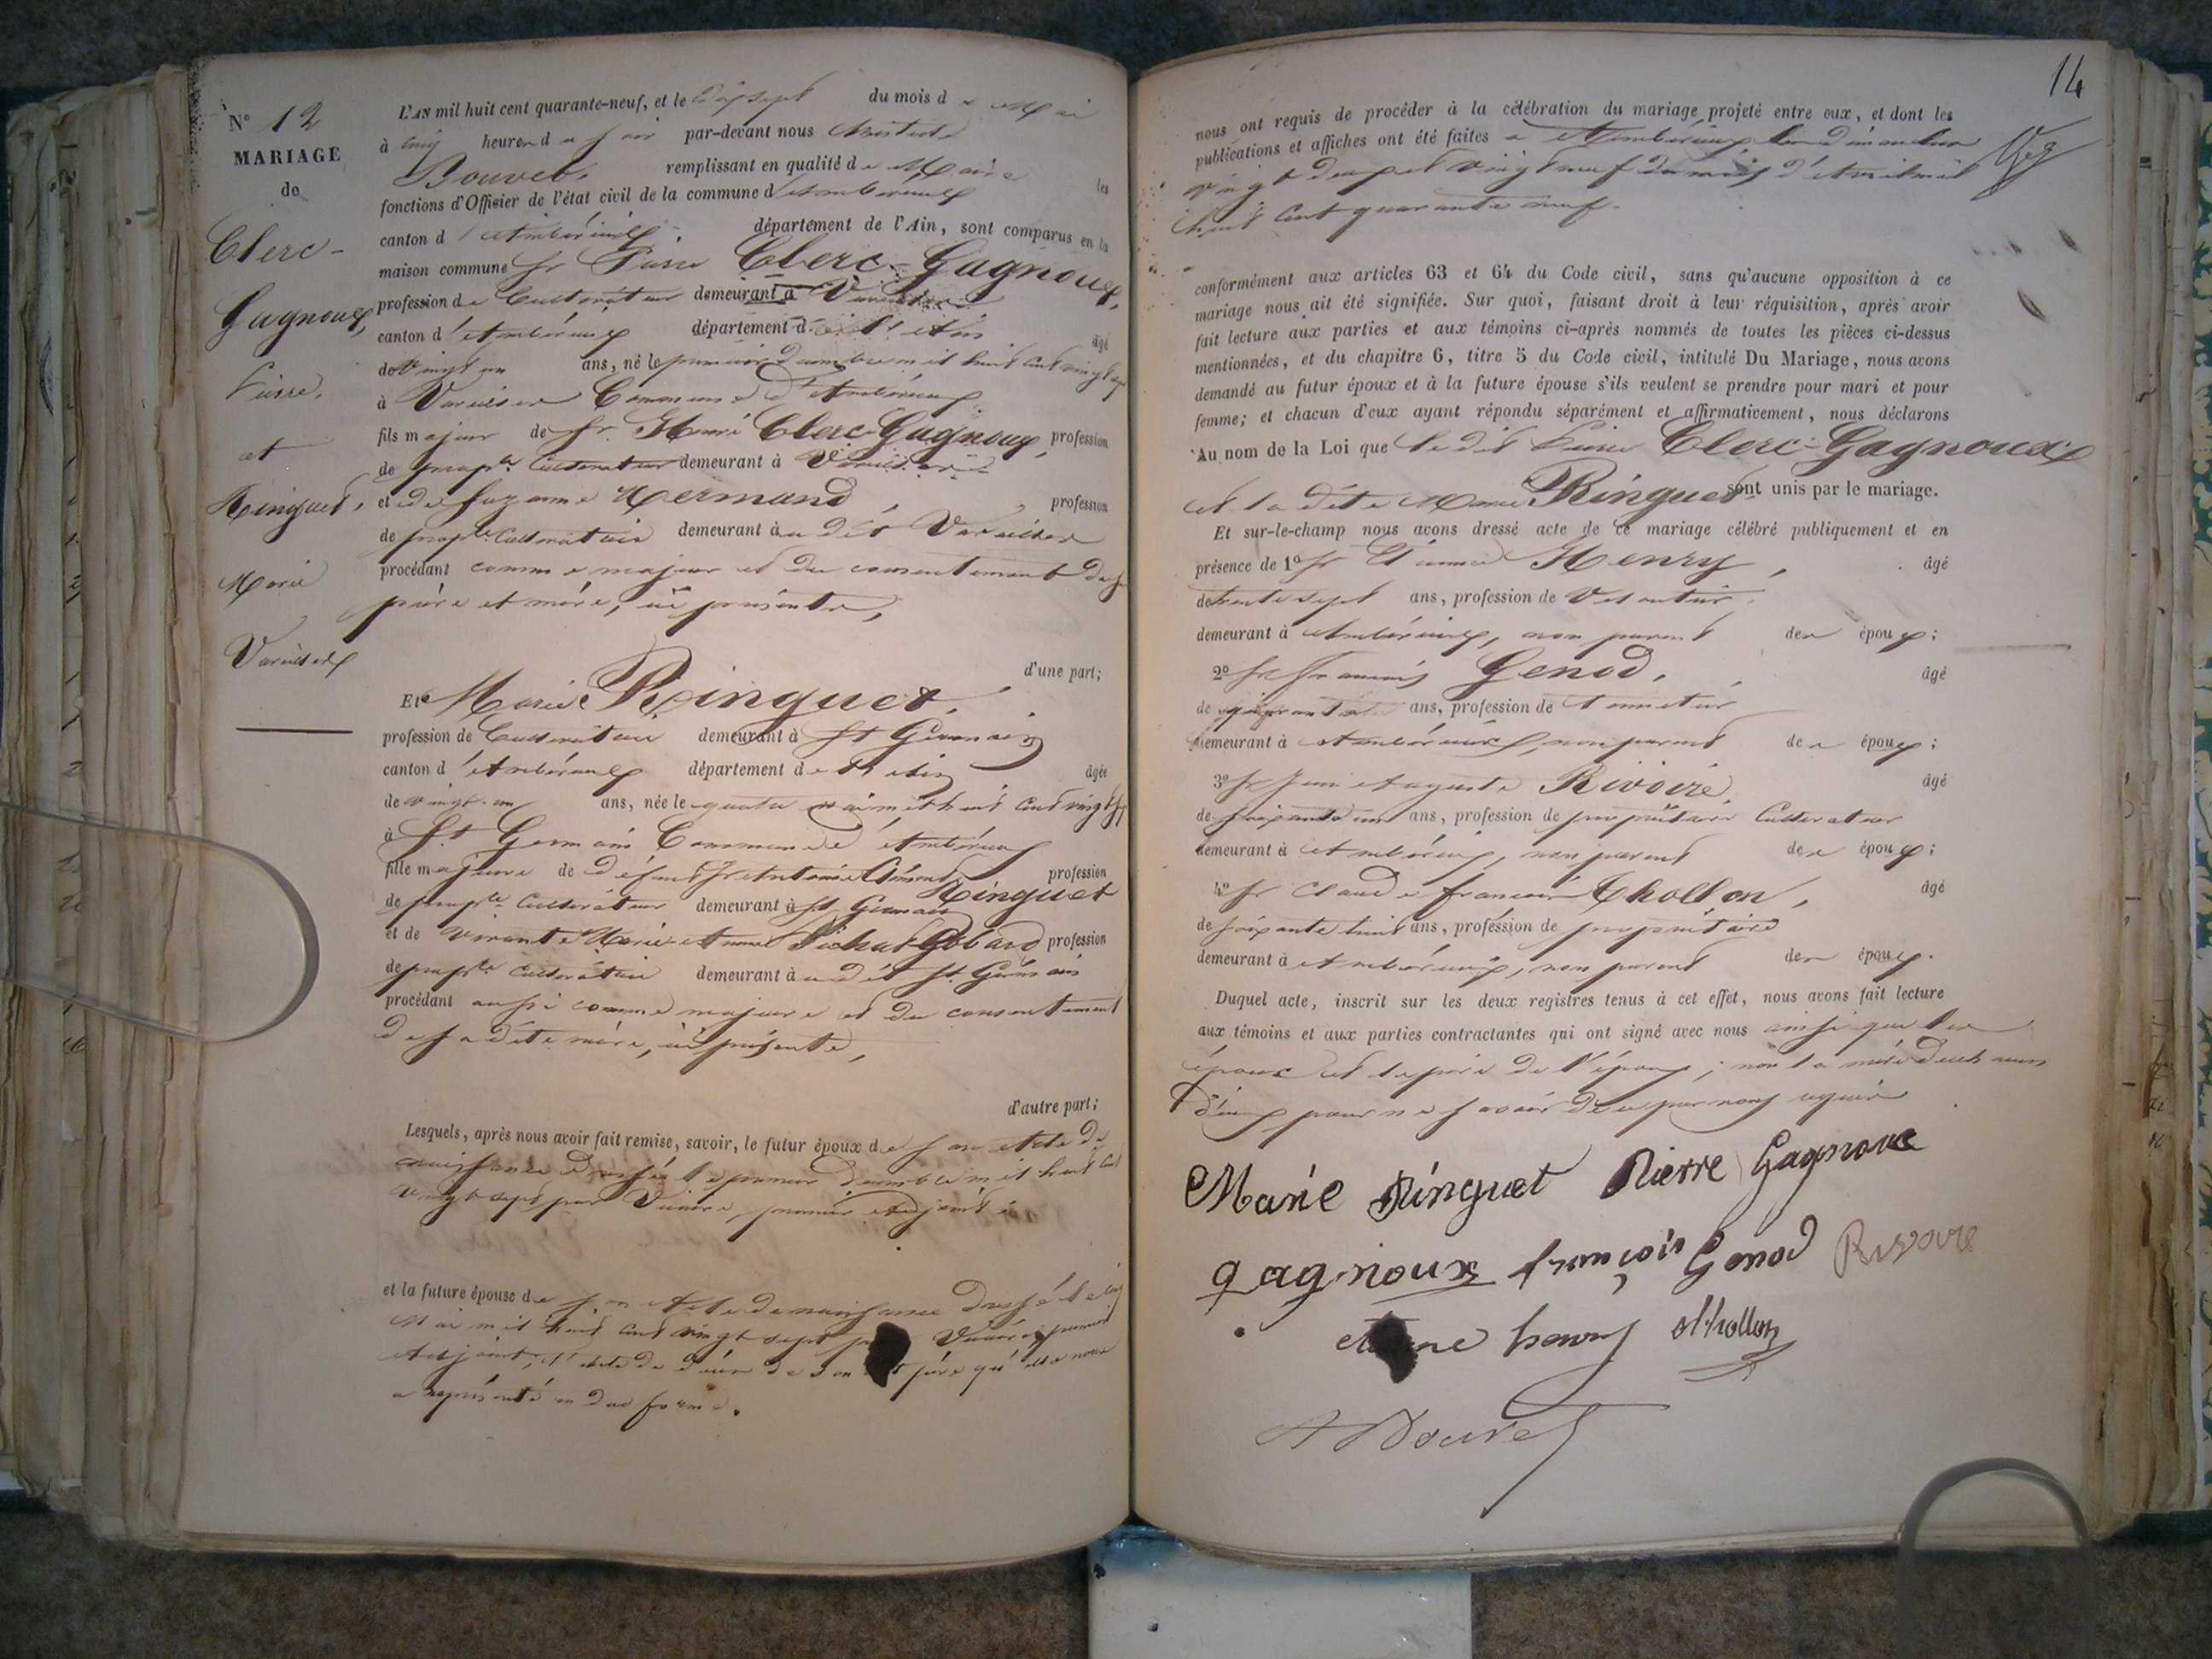 N° 12
MARIAGE
de
Clerc-
Gagnoux,
Pierre,
et
Ringuet,
Marie
Vareilles
L'AN mil huit cent quarante-neuf, et le dix sept du mois de Mai
à cinq heures du soir par-devant nous Aristide
Bouvet, remplissant en qualité de Maire les
fonctions d'Officier de l'état civil de la commune d'Ambérieux
canton d'Ambérieux département de l'Ain, sont comparus en la
maison commune Sr Pierre Clerc-Gagnoux,
profession de Cultivateur demeurant à Vareilles
canton d'Ambérieux département de l'Ain âgé
de vingt un ans, né le premier décembre mil huit cent vingt sept
à Vareilles Commune d'Ambérieux
fils majeur de Sr. Clerc-Gagnoux, profession
de propre Cultivateur demeurant à Vareilles
et de Suzanne Hermand, profession
de propre Cultivatrice demeurant au dit Vareilles
procédant comme majeur et du consentement de ses
père et mère, ici présents,
d'une part;
Et Marie Ringuet,
profession de Cultivatrice demeurant à St Germain
canton d'Ambérieux département de l'Ain âgée
de vingt-un ans, née le quatre mai mil huit cent vingt sept
à St Germain Commune d'Ambérieux
fille majeure de défunt Sr Antoine Ringuet profession
de propre Cultivateur demeurant à St Germain
et de vivante Marie Anne Pichat Gobard profession
de propre Cultivatrice demeurant au dit St Germain
procédant aussi comme majeure et du consentement
de sa dite mère, ici présente,
d'autre part;
Lesquels, après nous avoir fait remise, savoir, le futur époux de son Acte de
naissance dressé le premier décembre mil huit cent
vingt sept par premier Adjoint
et la future épouse de son Acte de naissance dressé le cinq
Mai mil huit cent vingt sept par premier
Adjoint, l'acte de décès de son père qu'elle nous
a représenté en due forme.
14
nous ont requis de procéder à la célébration du mariage projeté entre eux, et dont les
publications et affiches ont été faites à Ambérieux les dimanches
vingt deux et vingt neuf du mois d'Avril mil
huit cent quarante neuf.
conformément aux articles 63 et 64 du Code civil, sans qu'aucune opposition à ce
mariage nous ait été signifiée. Sur quoi, faisant droit à leur réquisition, après avoir
fait lecture aux parties et aux témoins ci-après nommés de toutes les pièces ci-dessus
mentionnées, et du chapitre 6, titre 5 du Code civil, intitulé Du Mariage, nous avons
demandé au futur époux et à la future épouse s'ils veulent se prendre pour mari et pour
femme; et chacun d'eux ayant répondu séparément et affirmativement, nous déclarons
Au nom de la Loi que le dit Pierre Clerc-Gagnoux
et la dite Marie Ringuet sont unis par le mariage.
Et sur-le-champ nous avons dressé acte de ce mariage célébré publiquement et en
présence de 1° Sr Etienne Henry, âgé
de trente sept ans, profession de
demeurant à Ambérieux, non parent des époux;
2° Sr François Genod, âgé
de quarante ans, profession de
demeurant à Ambérieux, non parent des époux;
3° Sr Jean Auguste Rivoire, âgé
de soixante un ans, profession de propriétaire Cultivateur
demeurant à Ambérieux, non parent des époux;
4° Sr Claude François Chollon, âgé
de soixante huit ans, profession de propriétaire
demeurant à Ambérieux, non parent des époux.
Duquel acte, inscrit sur les deux registres tenus à cet effet, nous avons fait lecture
aux témoins et aux parties contractantes qui ont signé avec nous ainsi que les
époux et le père de l'époux; non la mère de chacun
d'eux pour ne savoir de ce par nous requis
Marie Ringuet Pierre Gagnoux
gagnoux françois Genod Rivoire
henry Chollon
A Bouvet